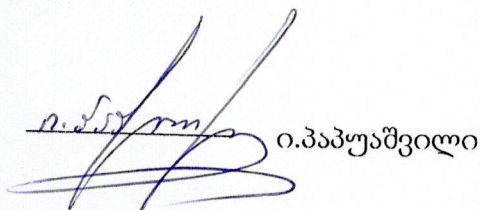 ი.პაპუაშვილი